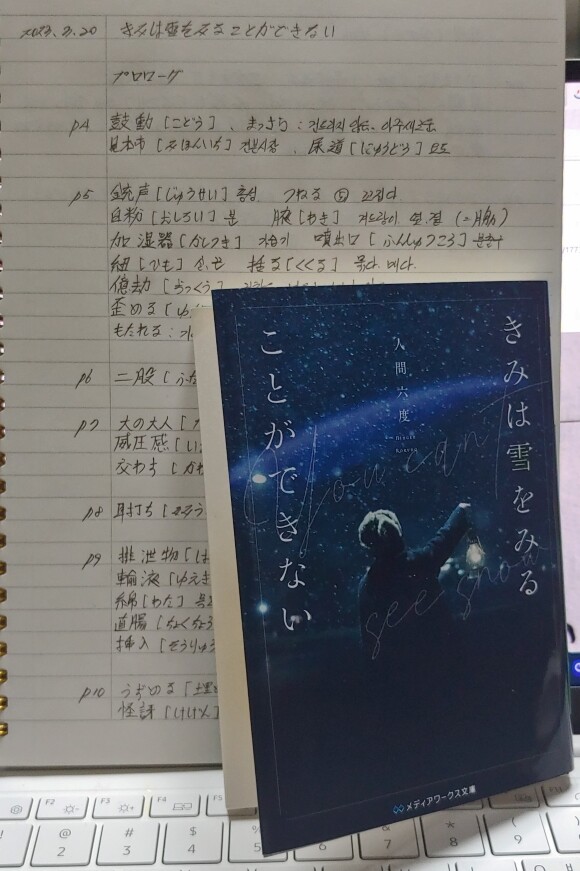 2023. 2. 20 きみは雪をみることができない
プロローグ
p4 鼓動 [こどう]、まっさら :
見本市 [みほんいち] 견본시장、尿道 [にょうどう] 요도
p5 銃声 [じゅうせい] 총성 つねる ⑤ 꼬집다
白粉 [おしろい] 분 腋 [わき] 겨드랑이
加湿器 [かしつき] 가습기 噴出口 [ふんしゅつこう] 분출구
紐 [ひも] 끈 括る [くくる] 묶다. 매다.
億劫 [おっくう]
歪める [ゆが
もたれる :
p6 二股 [ふた
p7 大の大人 [
威圧感 [い
交わす [かわ
p8 耳打ち [みみう
p9 排泄物 [は
輸液 [ゆえき
綿 [わた]
直腸 [ちょくちょう
挿入 [そうにゅう
p10 うずめる [埋
怪訝 [けげん]
きみは雪をみる
ことができない
人間六度
You can't
see snow
メディアワークス文庫
F2 F3 F4 F5
@ # $ % & * (
2 3 4 5 7 8 9